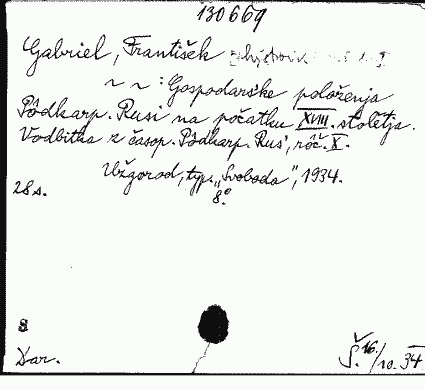 130669
Gabriel, František
~ ~ : Gospodarśke położenja
Pôdkarp. Rusi na počatku XVIII. stolětja.
Vodbitka z časop. Pôdkarp. Ruś, rôč. X.
Užgorod, typ. „Svoboda", 1934.
28 s. 8°.
8
Dar. Š. 16./10. 34